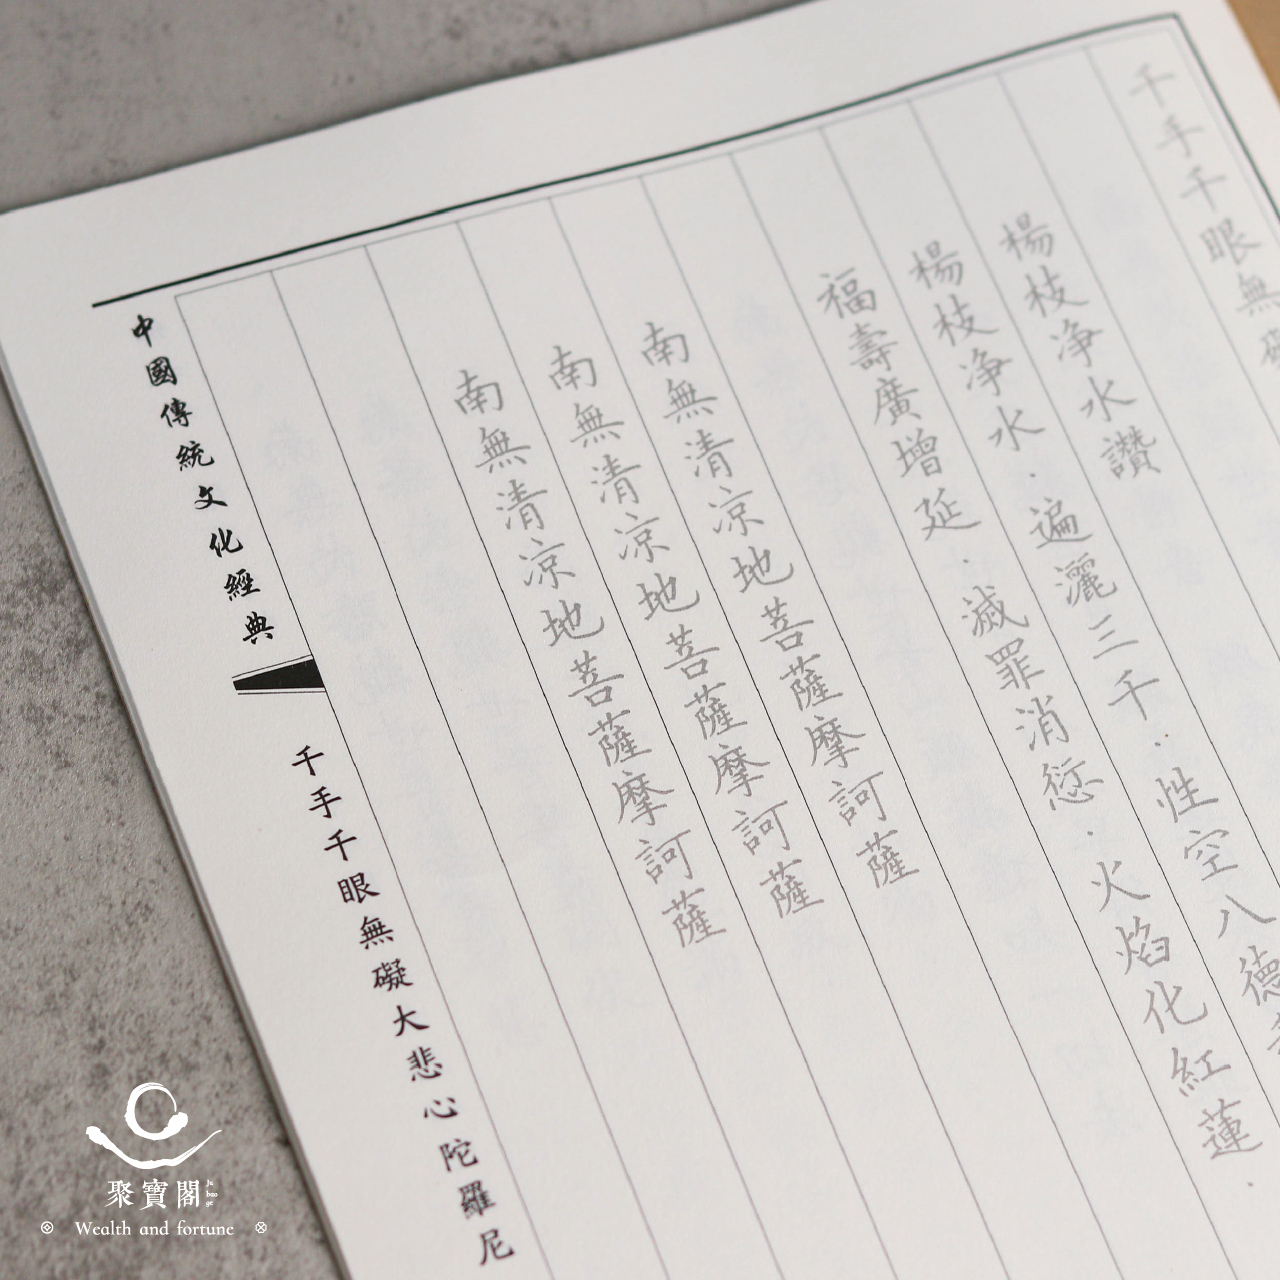 千手千眼無礙
楊枝净水讚
楊枝净水．遍灑三千．．性空八德
福壽廣增延．滅罪消愆．火焰化紅蓮．
南無清凉地菩薩摩訶薩
南無清凉地菩薩摩訶薩
南無清凉地菩薩摩訶薩
中國傳統文化經典
千手千眼無礙大悲心陀羅尼
聚寶閣
Ju bao ge
Wealth and fortune